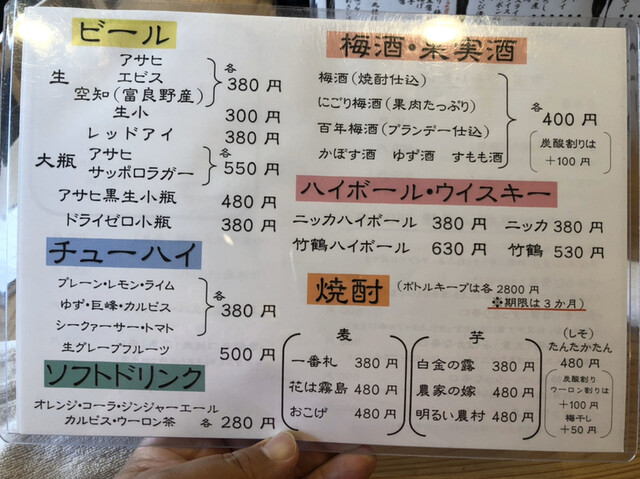 ビール
生
アサヒ
エビス
空知（富良野産）
各 380 円
生小 300 円
レッドアイ 380 円
大瓶
アサヒ
サッポロラガー
各 550 円
アサヒ黒生小瓶 480 円
ドライゼロ小瓶 380 円
チューハイ
プレーン・レモン・ライム
ゆず・巨峰・カルピス
シークァーサー・トマト
各 380 円
生グレープフルーツ 500 円
ソフトドリンク
オレンジ・コーラ・ジンジャーエール
カルピス・ウーロン茶 各 280 円
梅酒・果実酒
梅酒（焼酎仕込）
にごり梅酒（果肉たっぷり）
百年梅酒（ブランデー仕込）
かぼす酒 ゆず酒 すもも酒
各 400 円
炭酸割りは
+100 円
ハイボール・ウイスキー
ニッカハイボール 380 円 ニッカ 380 円
竹鶴ハイボール 630 円 竹鶴 530 円
焼酎（ボトルキープは各 2800 円
※期限は3か月）
麦
一番札 380 円
花は霧島 480 円
おこげ 480 円
芋
白金の露 380 円
農家の嫁 480 円
明るい農村 480 円
（しそ）
たんたかたん
480 円
炭酸割り
ウーロン割りは
+100 円
梅干し
+50 円